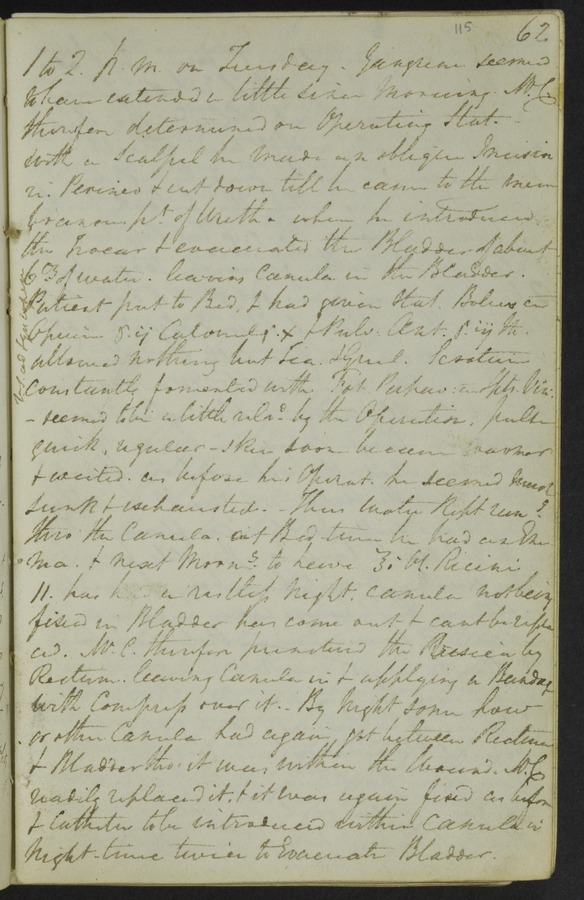 115 62
1 to 2. p. m. on Tuesday. Gangrene seemed
to have extended a little since Morning. Mr. C.
therefore determined on Operating Stat.
with a Scalpel he made an oblique Incision
in Perineo & cut down till he came to the mem
branous pt. of Ureth. when he introduced
the Trocar & evacuated the Bladder of about
of water. leaving Canula in the Bladder.
Patient put to Bed, & had given Stat. Bolus
Opium Calomel & Pulv. Ant.
allowed nothing but Tea. Gruel. Scrotum
constantly fomented with
- seemed to be a little by the Operation, pulse
quick, regular - skin soon became warmer
& excited. as before his Operat. he seemed much
sunk & exhausted. - Thus water kept
thro the Canula. at Bed time he had an
Ma. & next Morng. to have Ol. Ricini
11. has had a restless Night. Canula not being
fixed in Bladder has come out & cant be repla
ced. Mr. C. therefore punctured the Vesica by
Rectum. leaving Canula in & applying a Bandage
with Compress over it. - By Night some how
or other Canula had again got between Rectum
& Bladder tho' it was within the Wound. Mr. C
readily replaced it, & it was again fixed as before
& Catheter to be introduced within Canula in
Night-time twice to Evacuate Bladder.